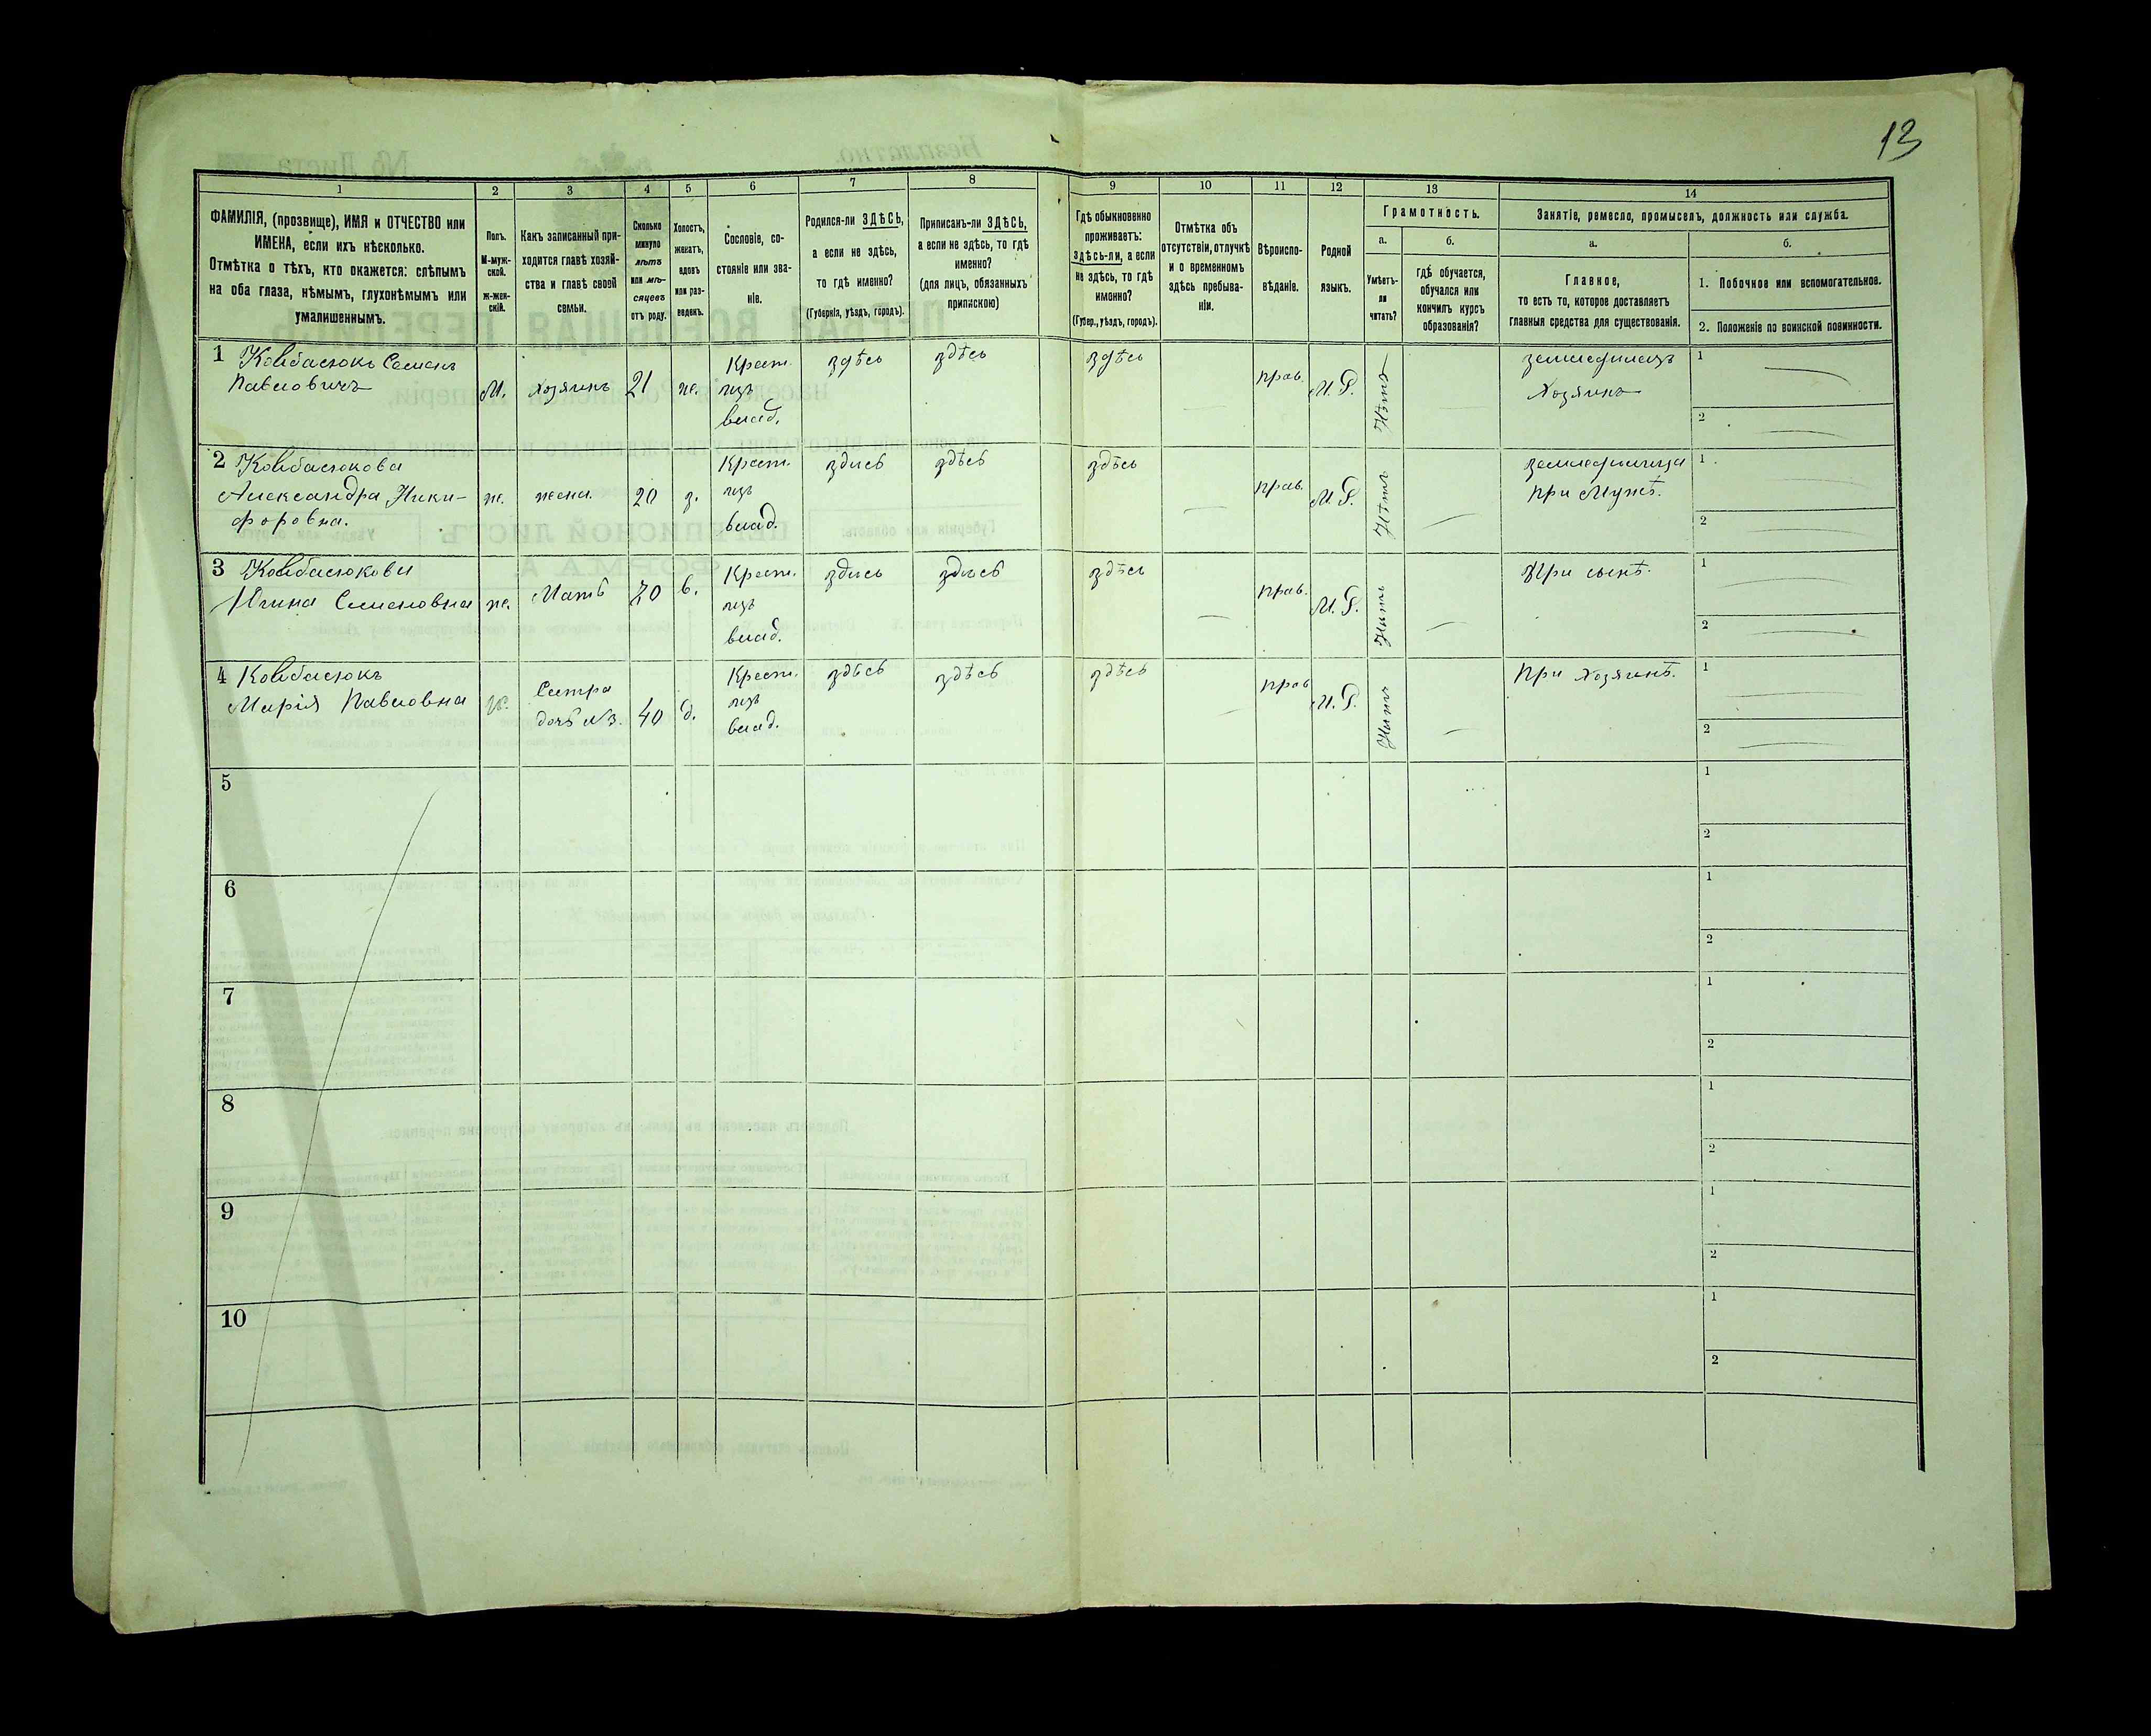 13
1 2 3 4 5 6 7 8 9 10 11 12 13 14
ФАМИЛІЯ, (прозвище), ИМЯ и ОТЧЕСТВО или
ИМЕНА, если ихъ нѣсколько.
Отмѣтка о тѣхъ, кто окажется: слѣпымъ
на оба глаза, нѣмымъ, глухонѣмымъ или
умалишеннымъ.
Полъ.
М-муж-
ской.
ж-жен-
скій.
Какъ записанный при-
ходится главѣ хозяй-
ства и главѣ своей
семьи.
Сколько
минуло
лѣтъ
или мѣ-
сяцевъ
отъ роду.
Холостъ,
женатъ,
вдовъ
или раз-
веденъ.
Сословіе, со-
стояніе или зва-
ніе.
Родился-ли ЗДѢСЬ,
а если не здѣсь,
то гдѣ именно?
(Губернія, уѣздъ, городъ).
Приписанъ-ли ЗДѢСЬ,
а если не здѣсь, то гдѣ
именно?
(для лицъ, обязанныхъ
припискою)
Гдѣ обыкновенно
проживаетъ:
здѣсь-ли, а если
не здѣсь, то гдѣ
именно?
(Губер., уѣздъ, городъ).
Отмѣтка объ
отсутствіи, отлучкѣ
и о временномъ
здѣсь пребыва-
ніи.
Вѣроиспо-
вѣданіе.
Родной
языкъ.
Грамотность.
а.
Умѣетъ-
ли
читать?
б.
гдѣ обучается,
обучался или
кончилъ курсъ
образованія?
Занятіе, ремесло, промыселъ, должность или служба.
а.
Главное,
то есть то, которое доставляетъ
главныя средства для существованія.
б.
1. Побочное или вспомогательное.
2. Положеніе по воинской повинности.
1 Ковбасюкъ Семенъ
Павловичъ
М. хозяинъ 21 ж.
Крест.
изъ
влад.
здѣсь здѣсь здѣсь прав. М. Р. Нѣтъ
земледѣлецъ
Хозяинъ
1
2
2 Ковбасюкова
Александра Ники-
форовна.
ж. жена. 20 з.
Крест.
изъ
влад.
здись здѣсь здѣсь прав. М. Р. Нѣтъ
земледѣлица
при Мужѣ.
1
2
3 Ковбасюкова
Семеновна
ж. Мать 70 в.
Крест.
изъ
влад.
здись здись здѣсь прав. М. Р. Нитъ
При сынѣ.
1
2
4 Ковбасюкъ
Марія Павловна
ж.
Сестра
дочь №3. 40 д.
Крест.
изъ
влад.
здѣсь здѣсь здѣсь прав М. Р. Нитъ
При хозяинѣ.
1
2
5
1
2
6
1
2
7
1
2
8
1
2
9
1
2
10
1
2